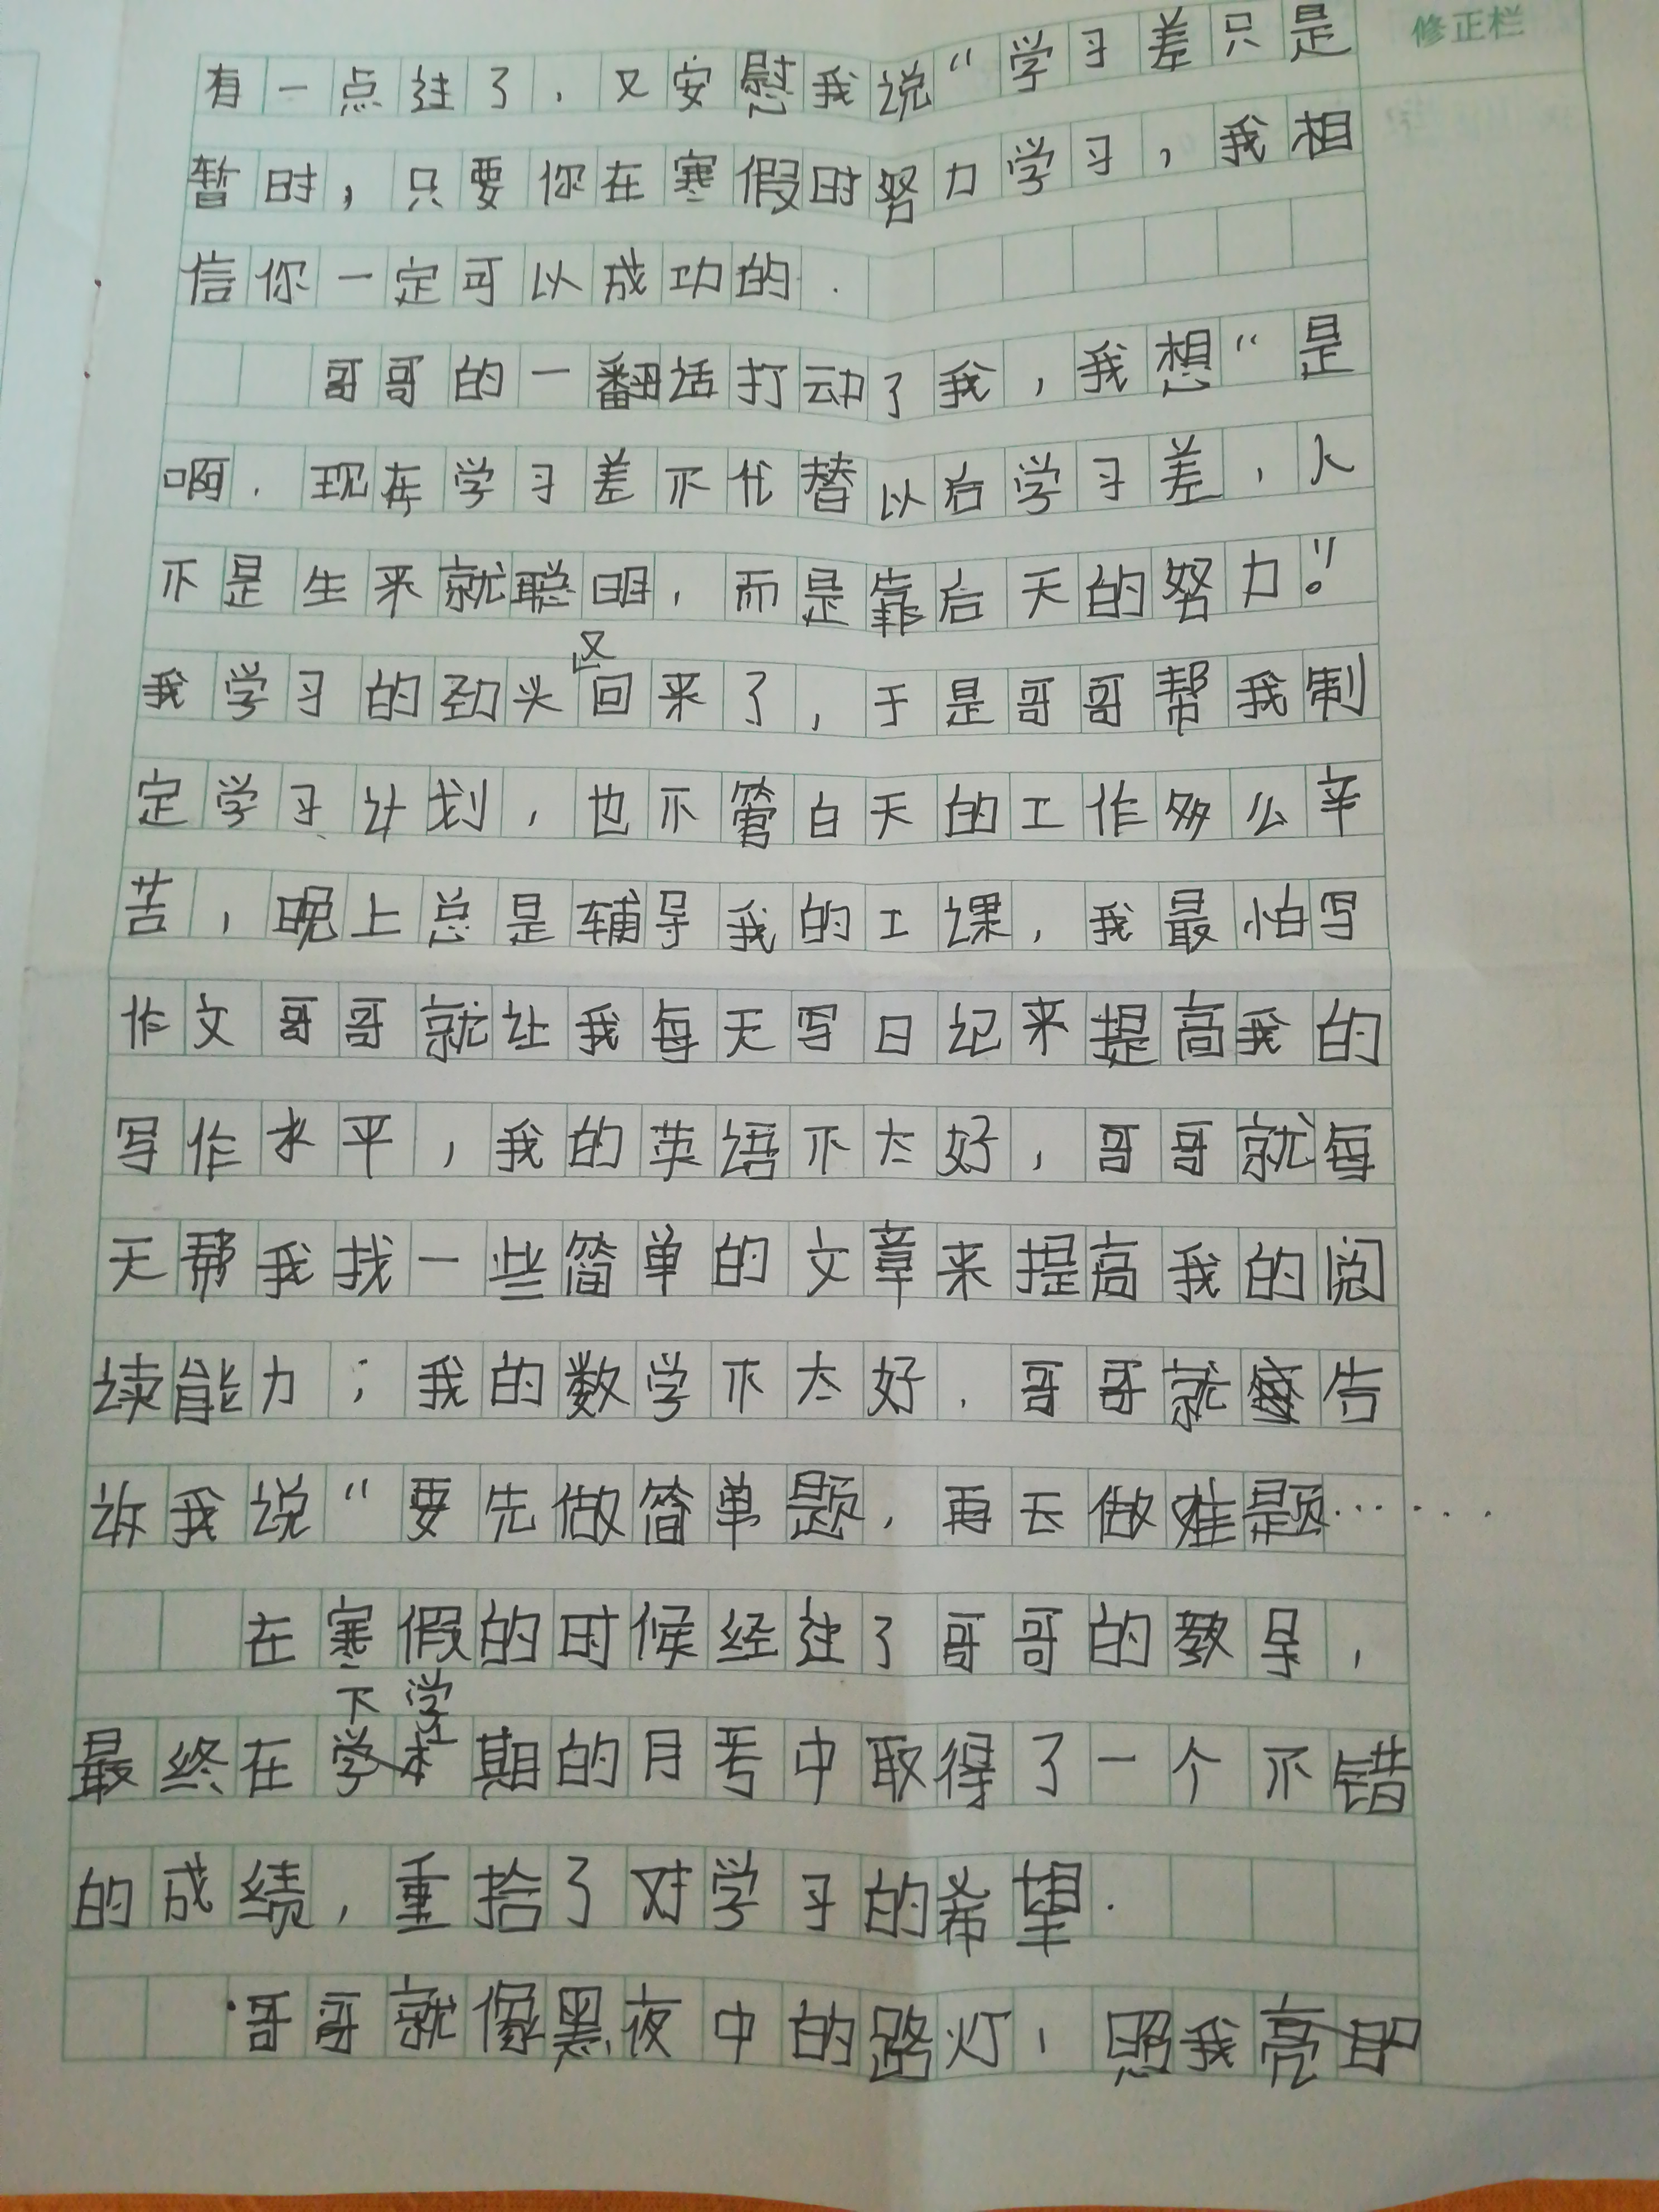 修正栏
有一点过了，又安慰我说“学习差只是
暂时，只要你在寒假时努力学习，我相
信你一定可以成功的.
哥哥的一翻话打动了我，我想“是
啊.现在学习差不代替以后学习差，人
不是生来就聪明，而是靠后天的努力。”
又
我学习的劲头回来了，于是哥哥帮我制
定学习计划，也不管白天的工作多么辛
苦，晚上总是辅导我的工课，我最怕写
作文哥哥就让我每天写日记来提高我的
写作水平，我的英语不太好，哥哥就每
天帮我找一些简单的文章来提高我的阅
读能力；我的数学不太好.哥哥就告
诉我说“要先做简单题，再去做难题……
在寒假的时候经过了哥哥的教导，
下学
最终在期的月考中取得了一个不错
的成绩，重拾了对学习的希望.
哥哥就像黑夜中的路灯，照我亮